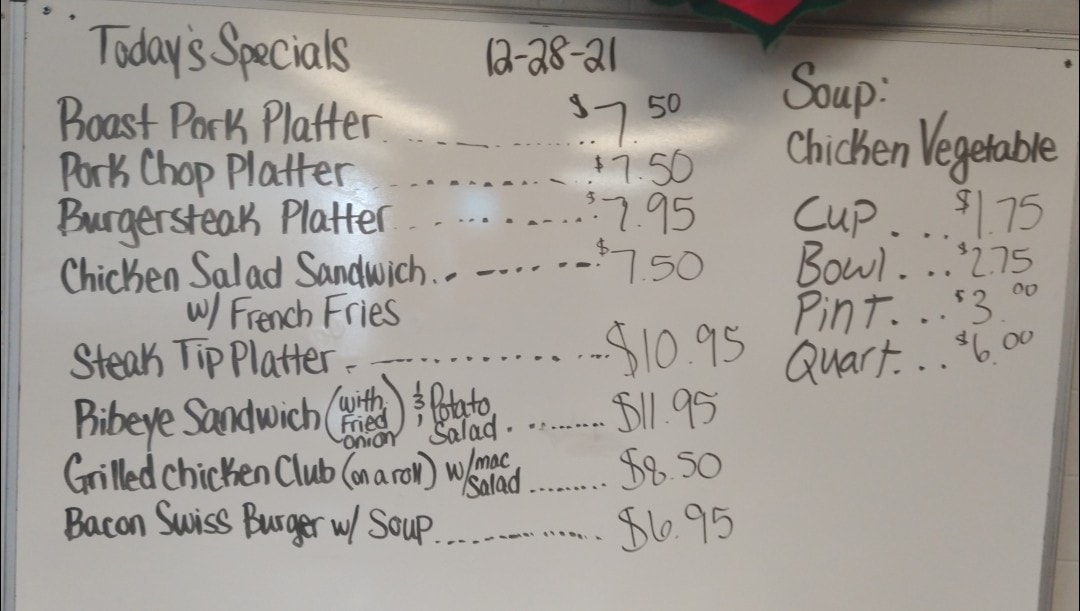 Today's Specials 12-28-21
Roast Pork Platter ............ $7.50
Pork Chop Platter ............ $7.50
Burgersteak Platter ............ $7.95
Chicken Salad Sandwich ............ $7.50
w/ French Fries
Steak Tip Platter ............ $10.95
Ribeye Sandwich (with Fried onion) & Potato Salad ............ $11.95
Grilled Chicken Club (on a roll) w/ mac Salad ......... $8.50
Bacon Swiss Burger w/ Soup ............ $6.95
Soup:
Chicken Vegetable
Cup.... $1.75
Bowl.... $2.75
Pint.... $3.00
Quart.... $6.00